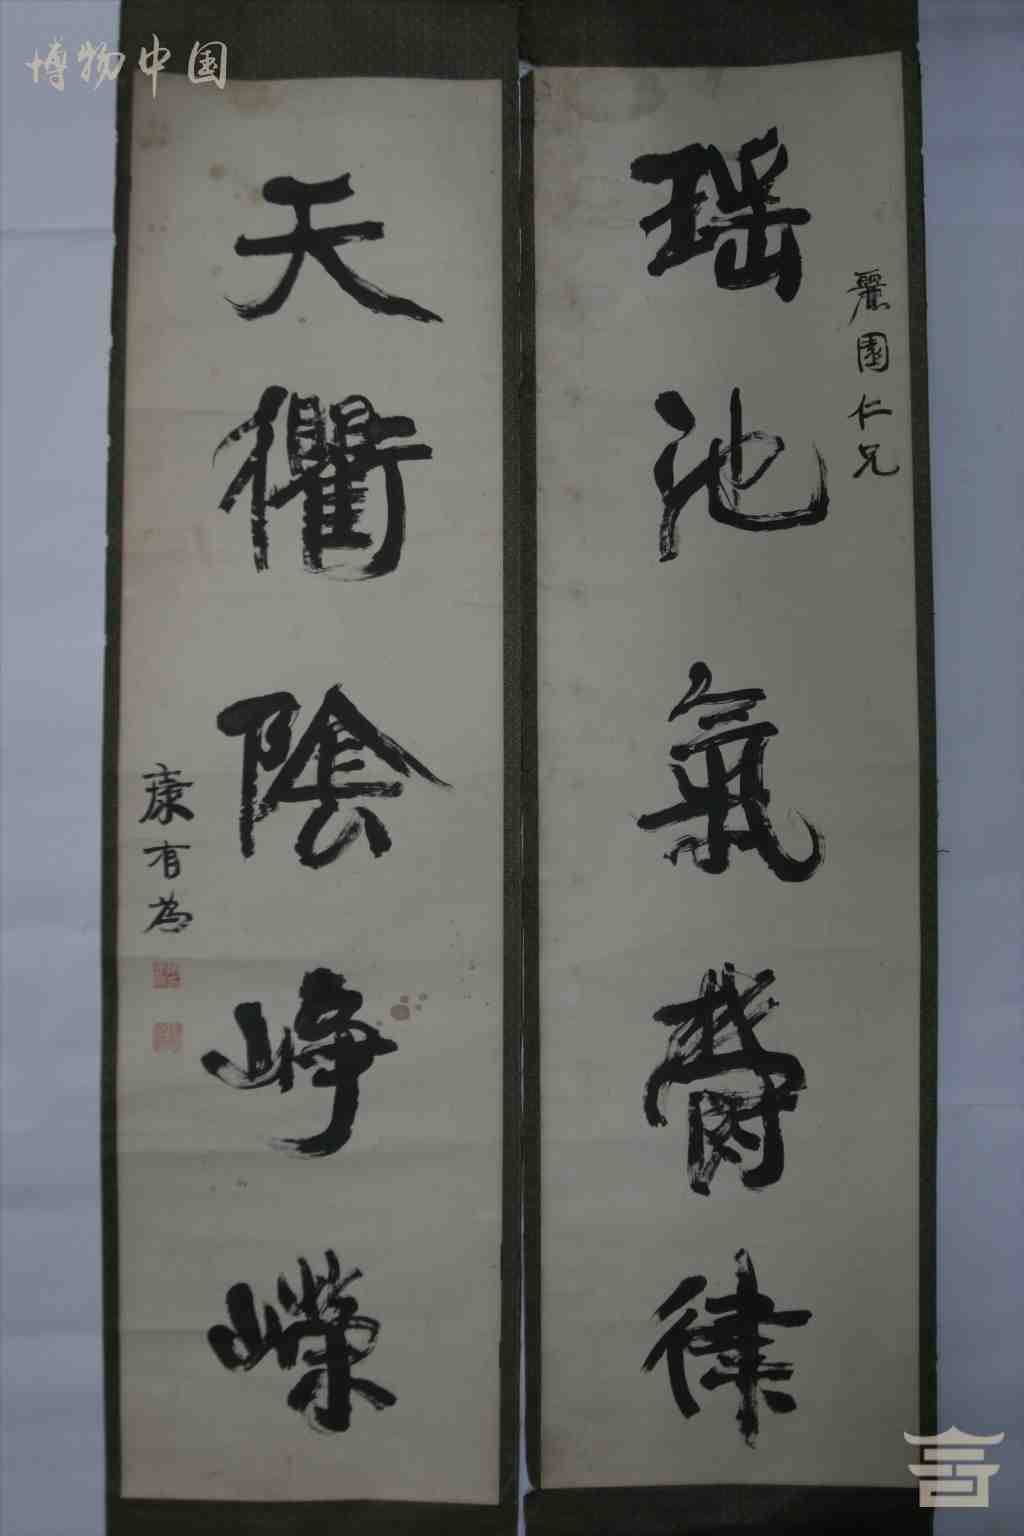 博物中国
麗園仁兄
瑶池氣鬱律
天衢陰崢嶸
康有為